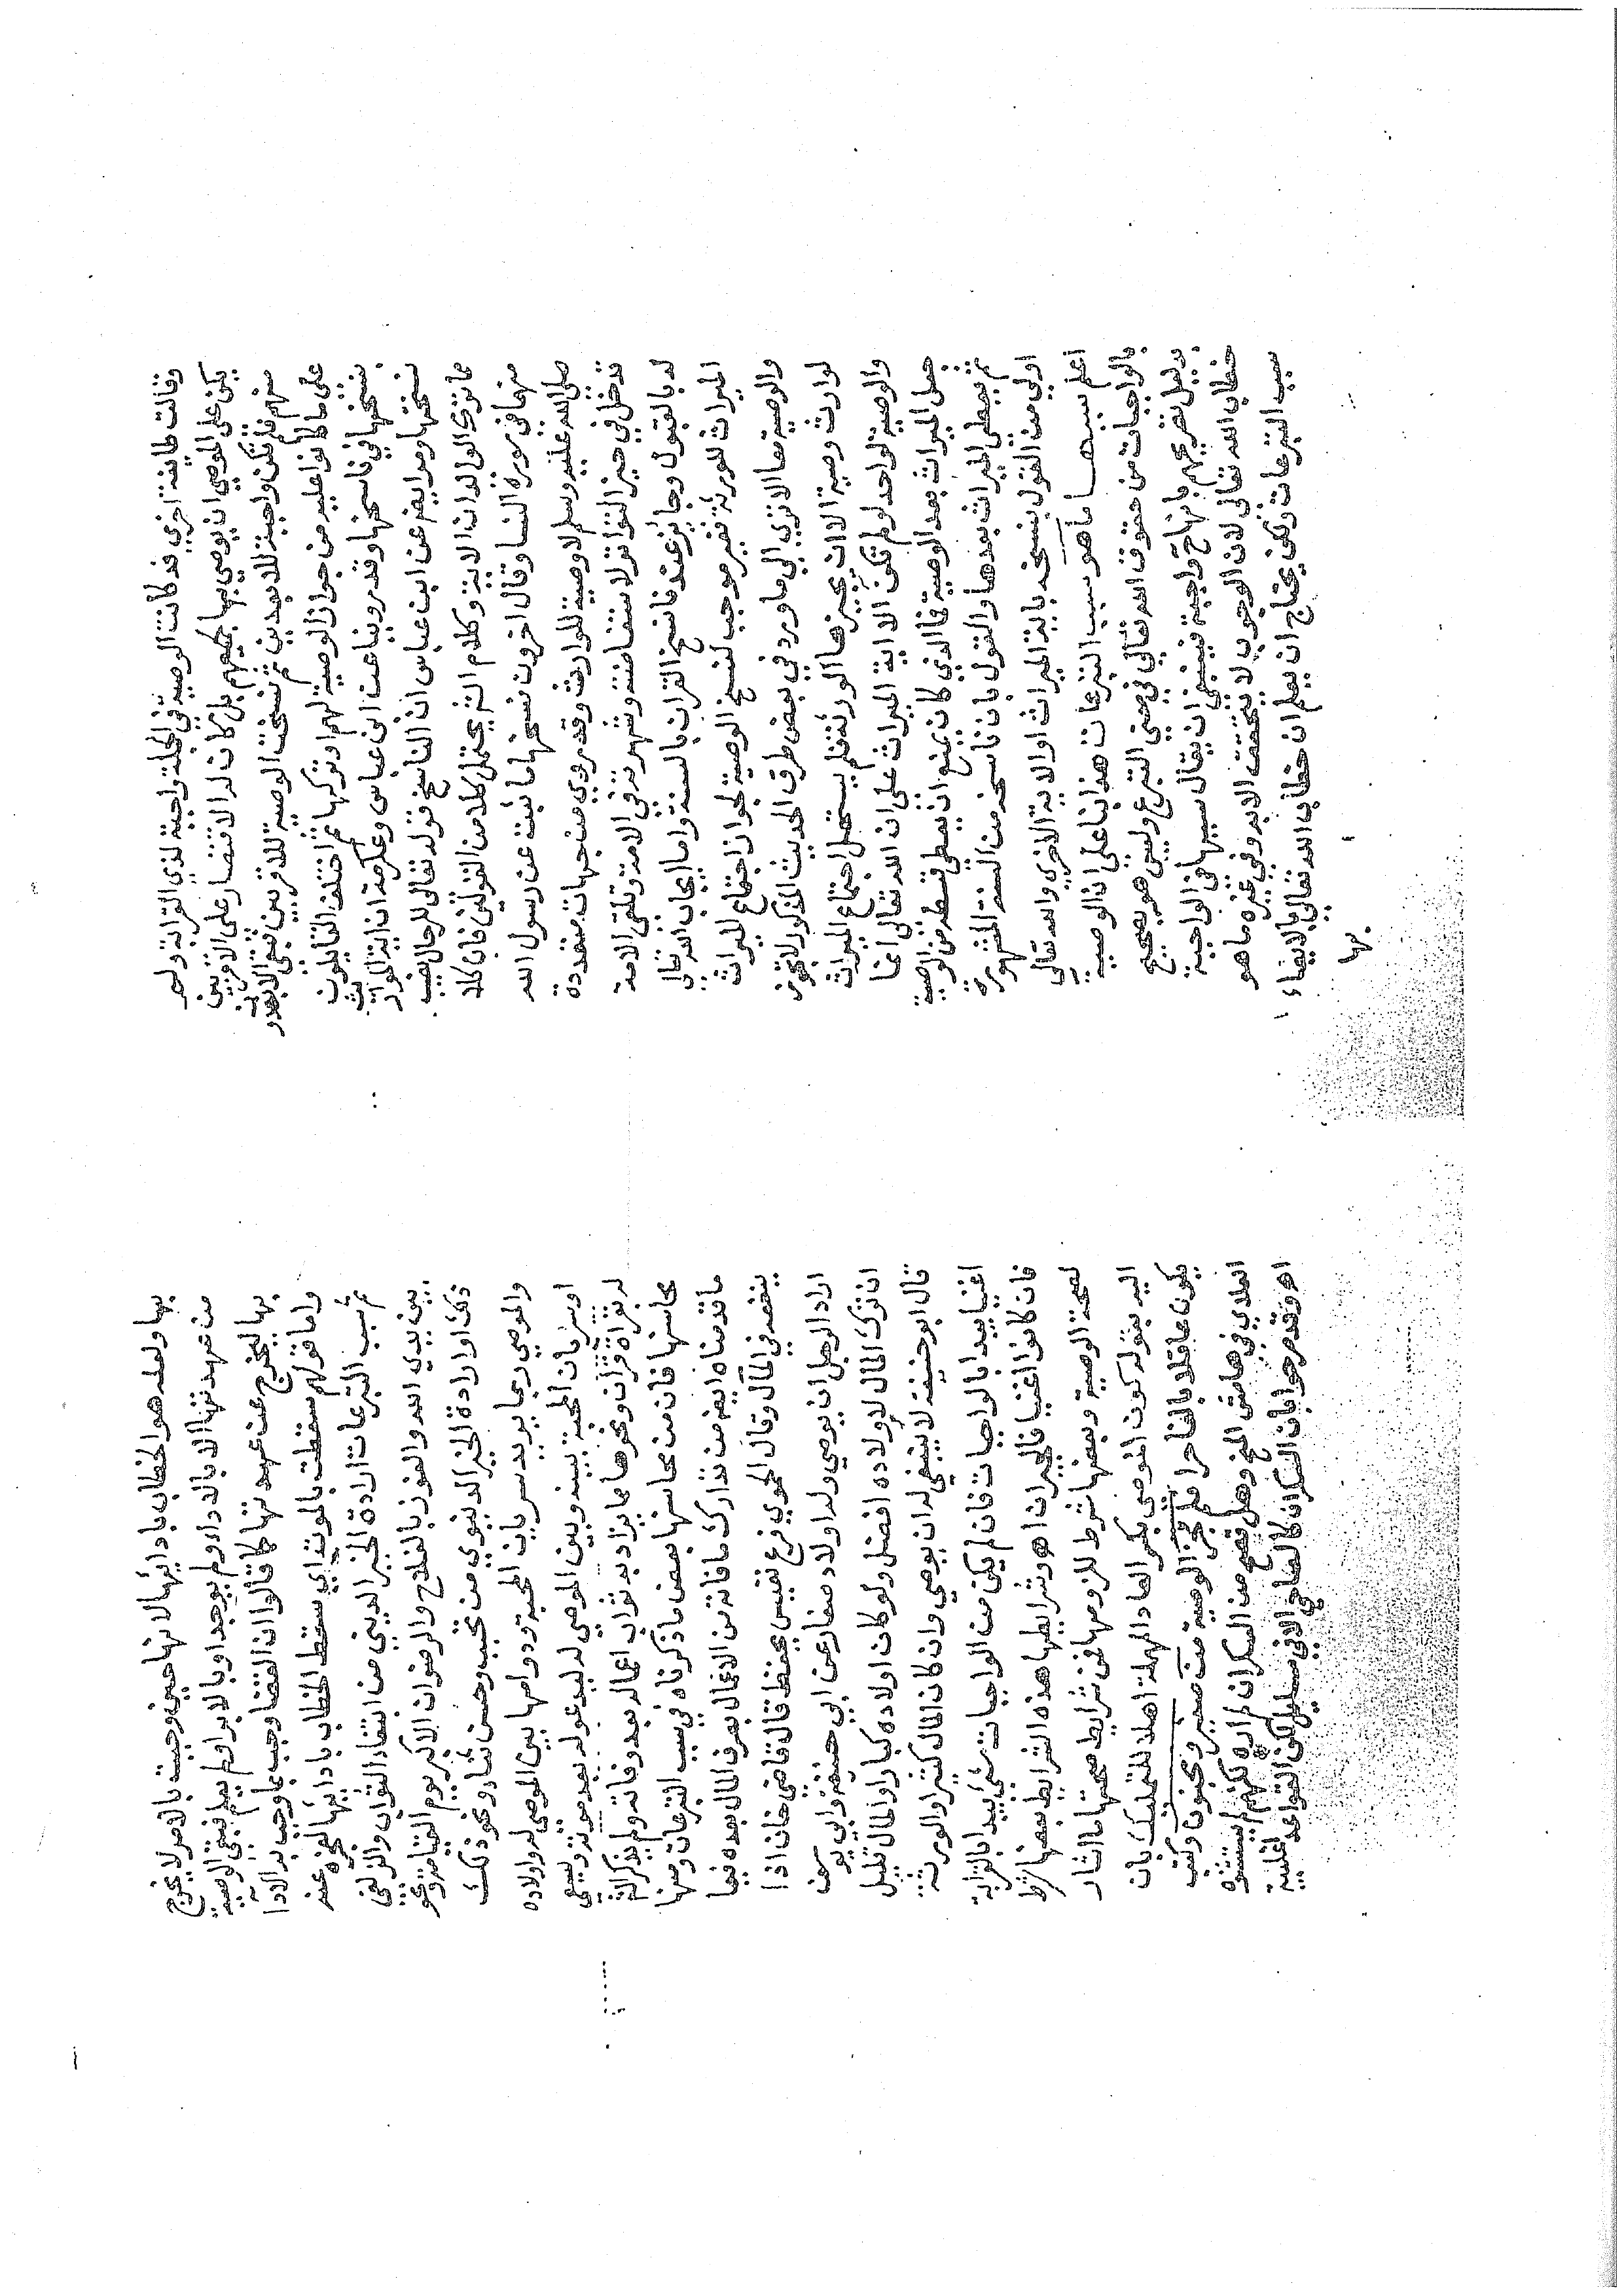 وقالت طايفة اخري قد كانت الوصية في الجملة واجبة لذي القرابة ولم
يكن علي الموصي ان يوصي بها لجميعهم بل كان له الاقتصار علي الاقربين
منهم فلم تكن واجبة للابعدين ثم نسخت الوصية للاقربين فبقي الابعدون
علي ما كانوا عليه من جواز الوصية لهم او تركها ثم اختلف القايلون
بنسخها في ناسخها وقد روينا عن ابن عباس وعكرمة ان اية المواريث
نسختها وروايضا عن ابن عباس ان الناسخ قوله تعالي للرجال نصيب
مما ترك الوالدان الاية وكلام الثر يحتمل كلا من القولين فان كلا
منهما في سورة النسا وقال اخرون نسخها ما ثبت عن رسول الله
صلي الله عليه وسلم لا وصية للوارث وقد روي من جهات متعددة
تدخل في حيز التواتر لاستفاضته وشهرته في الامة وتلقي الامة
له بالقبول وجايز عندنا نسخ القران بالسنة واما ايجاب الله تعالي
الميراث للورثة فغير موجب لنسخ الوصية لجواز اجتماع الميراث
والوصية معا الا تري الي ما ورد في بعض طرق الحديث المذكور لا تجوز
لوارث وصية الا ان يجيزها الورثة فلم يستحل اجتماع الميراث
والوصية لواحد لو لم تكن الا اية الميراث علي ان الله تعالي انما
جعل الميراث بعد الوصية فما الذي كان يمنع ان يعطي قسطه من الوصية
ثم يعطي الميراث بعدها والقول بان ناسخه من السنة المشهورة
اولي من القول بنسخه باية الميراث او الاية الاخري والله تعالي
اعلم سببها ما هو سبب التبرعات هذا بنا علي ان الوصية
بالواجبات من حقوق الله تعالي في معني التبرع وليس هو بصحيح
بدليل تصريحهم بانها واجبة فينبغي ان يقال سببها في الواجبة
خطاب الله تعالي لان الوجوب لا يتحقق الا به وفي غيره ما هو
سبب التبرعات ولكن يحتاج ان يعلم ان خطاب الله تعالي بالايفاء
بها
بها ولعله هو الخطاب بادايها لانها حين وجبت بالامر لا يخرج
من عهدتها الا بالاداء ولم يوجد او بالابرا ولم يعلم فبقي الوصية
بها ليخرج عن عهدتها كما قالوا ان القضا وجب بما وجب به الادا
واما قولهم سقطت بالموت اي سقط الخطاب بادايها لعجزه عنه
ثم سبب التبرعات ارادة الخير الديني من ابتغاء الثواب والزلفي
بين يدي الله والفوز بالفلاح والرضوان الاكبر يوم القيامة ونحو
ذلك او ارادة الخير الدنيوي من تحبب وحسن ثناء ونحو ذلك
والموصي ربما يريد سريان المحبة ودوامها بين الموصي له واولاده
او سريان المحبة بينه وبين الموصي له ليدعو له بعد موته ويسعي
له بقراة قران ونحوها مما يزاد به ثواب اعماله بعد وفاته ولم يذكر الش
محاسنها فان من محاسنها بعض ما ذكرناه في سبب التبرعات ومنها
ما قدمناه ايضا من تدارك ما فاته من الاعمال بصرف المال بعده فيما
ينفعه في المآل وقال الحموي فرع نفيس يحفظ قال قاضي خان اذا
اراد الرجل ان يوصي وله اولاد صغار عن ابي حنيفة وابي يوسف
ان ترك المال لاولاده افضل ولو كان اولاده كبارا والمال قليل
قال ابو حنيفة لا ينبغي له ان يوصي وان كان المال كثيرا والورثة
اغنيا يبدا بالواجبات فان لم يكن من الواجبات شي يبدا بالقرابة
فان كانوا اغنيا فالجيران اهـ وشرايطها هذه الشرايط بعضها شرط
لصحة الوصية وبعضها شرط للزومها فمن شرايط صحتها ما اشار
اليه بقوله كون الموصي بكسر الصاد المهملة اهلا للتمليك بان
يكون عاقلا بالغا حرا فلم تجز الوصية من صغير ومجنون وكتب
العلاي في هامش المنح وهل تصح من السكران لم اره لكنهم لم يستثنوه
اهـ وقد مر جوابا بان السكران كالصاحي الا في مسايل لكن القواعد اغلبية